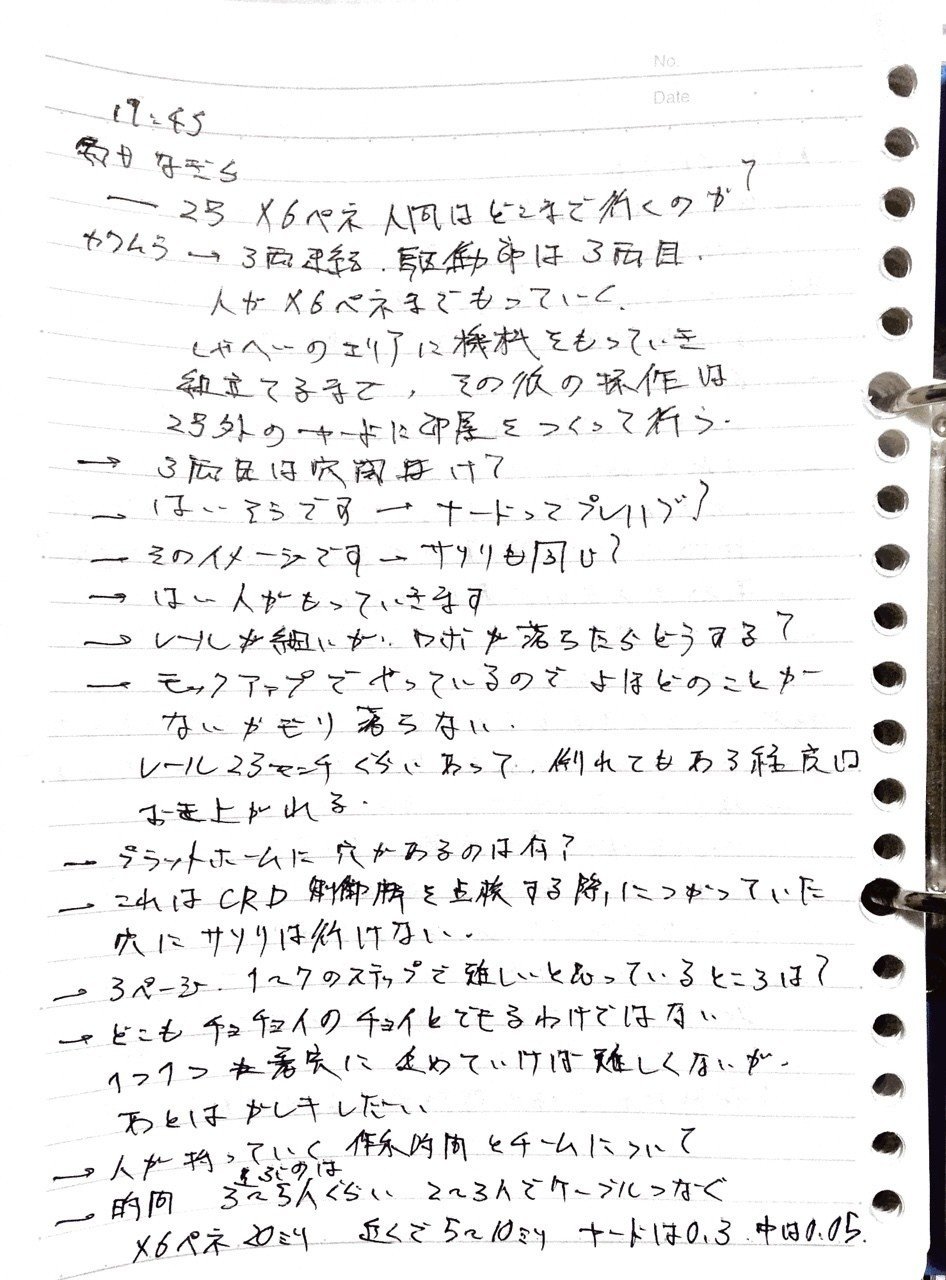 No.
Date
17:45
なぎら
— 2号 X6ペネ 人間はどこまで行くのか?
カワムラ → 3両連結. 駆動部は3両目.
人がX6ペネまでもっていく.
しゃへいのエリアに機材をもっていき
組立てるまで, その後の操作は
2号外のヤードに部屋をつくって行う.
→ 3両目は穴開け?
→ はいそうです → ヤードってプレハブ?
→ そのイメージです → サソリも同じ?
→ はい人がもっていきます
→ レールが細いが. ロボが落ちたらどうする?
→ モックアップでやっているのでよほどのことが
ないかぎり落ちない.
レール23センチぐらいあって. 倒れてもある程度は
おき上がれる.
→ プラットホームに穴があるのは何?
→ これはCRD 制御棒を点検する際,につかっていた
穴にサソリは行けない.
→ 3ページ. 1〜7のステップで難しいと思っているところは?
→ どこもチョチョイのチョイとできるわけではない
1つ1つ着実に進めていけば難しくないが.
あとはがれきしだい
→ 人が持っていく 作業時間とチームについて
運ぶのは
→ 時間 3〜5人ぐらい 2〜3人でケーブルつなぐ
X6ペネ 20ミリ 近くで5〜10ミリ ヤードは0.3. 中は0.05.